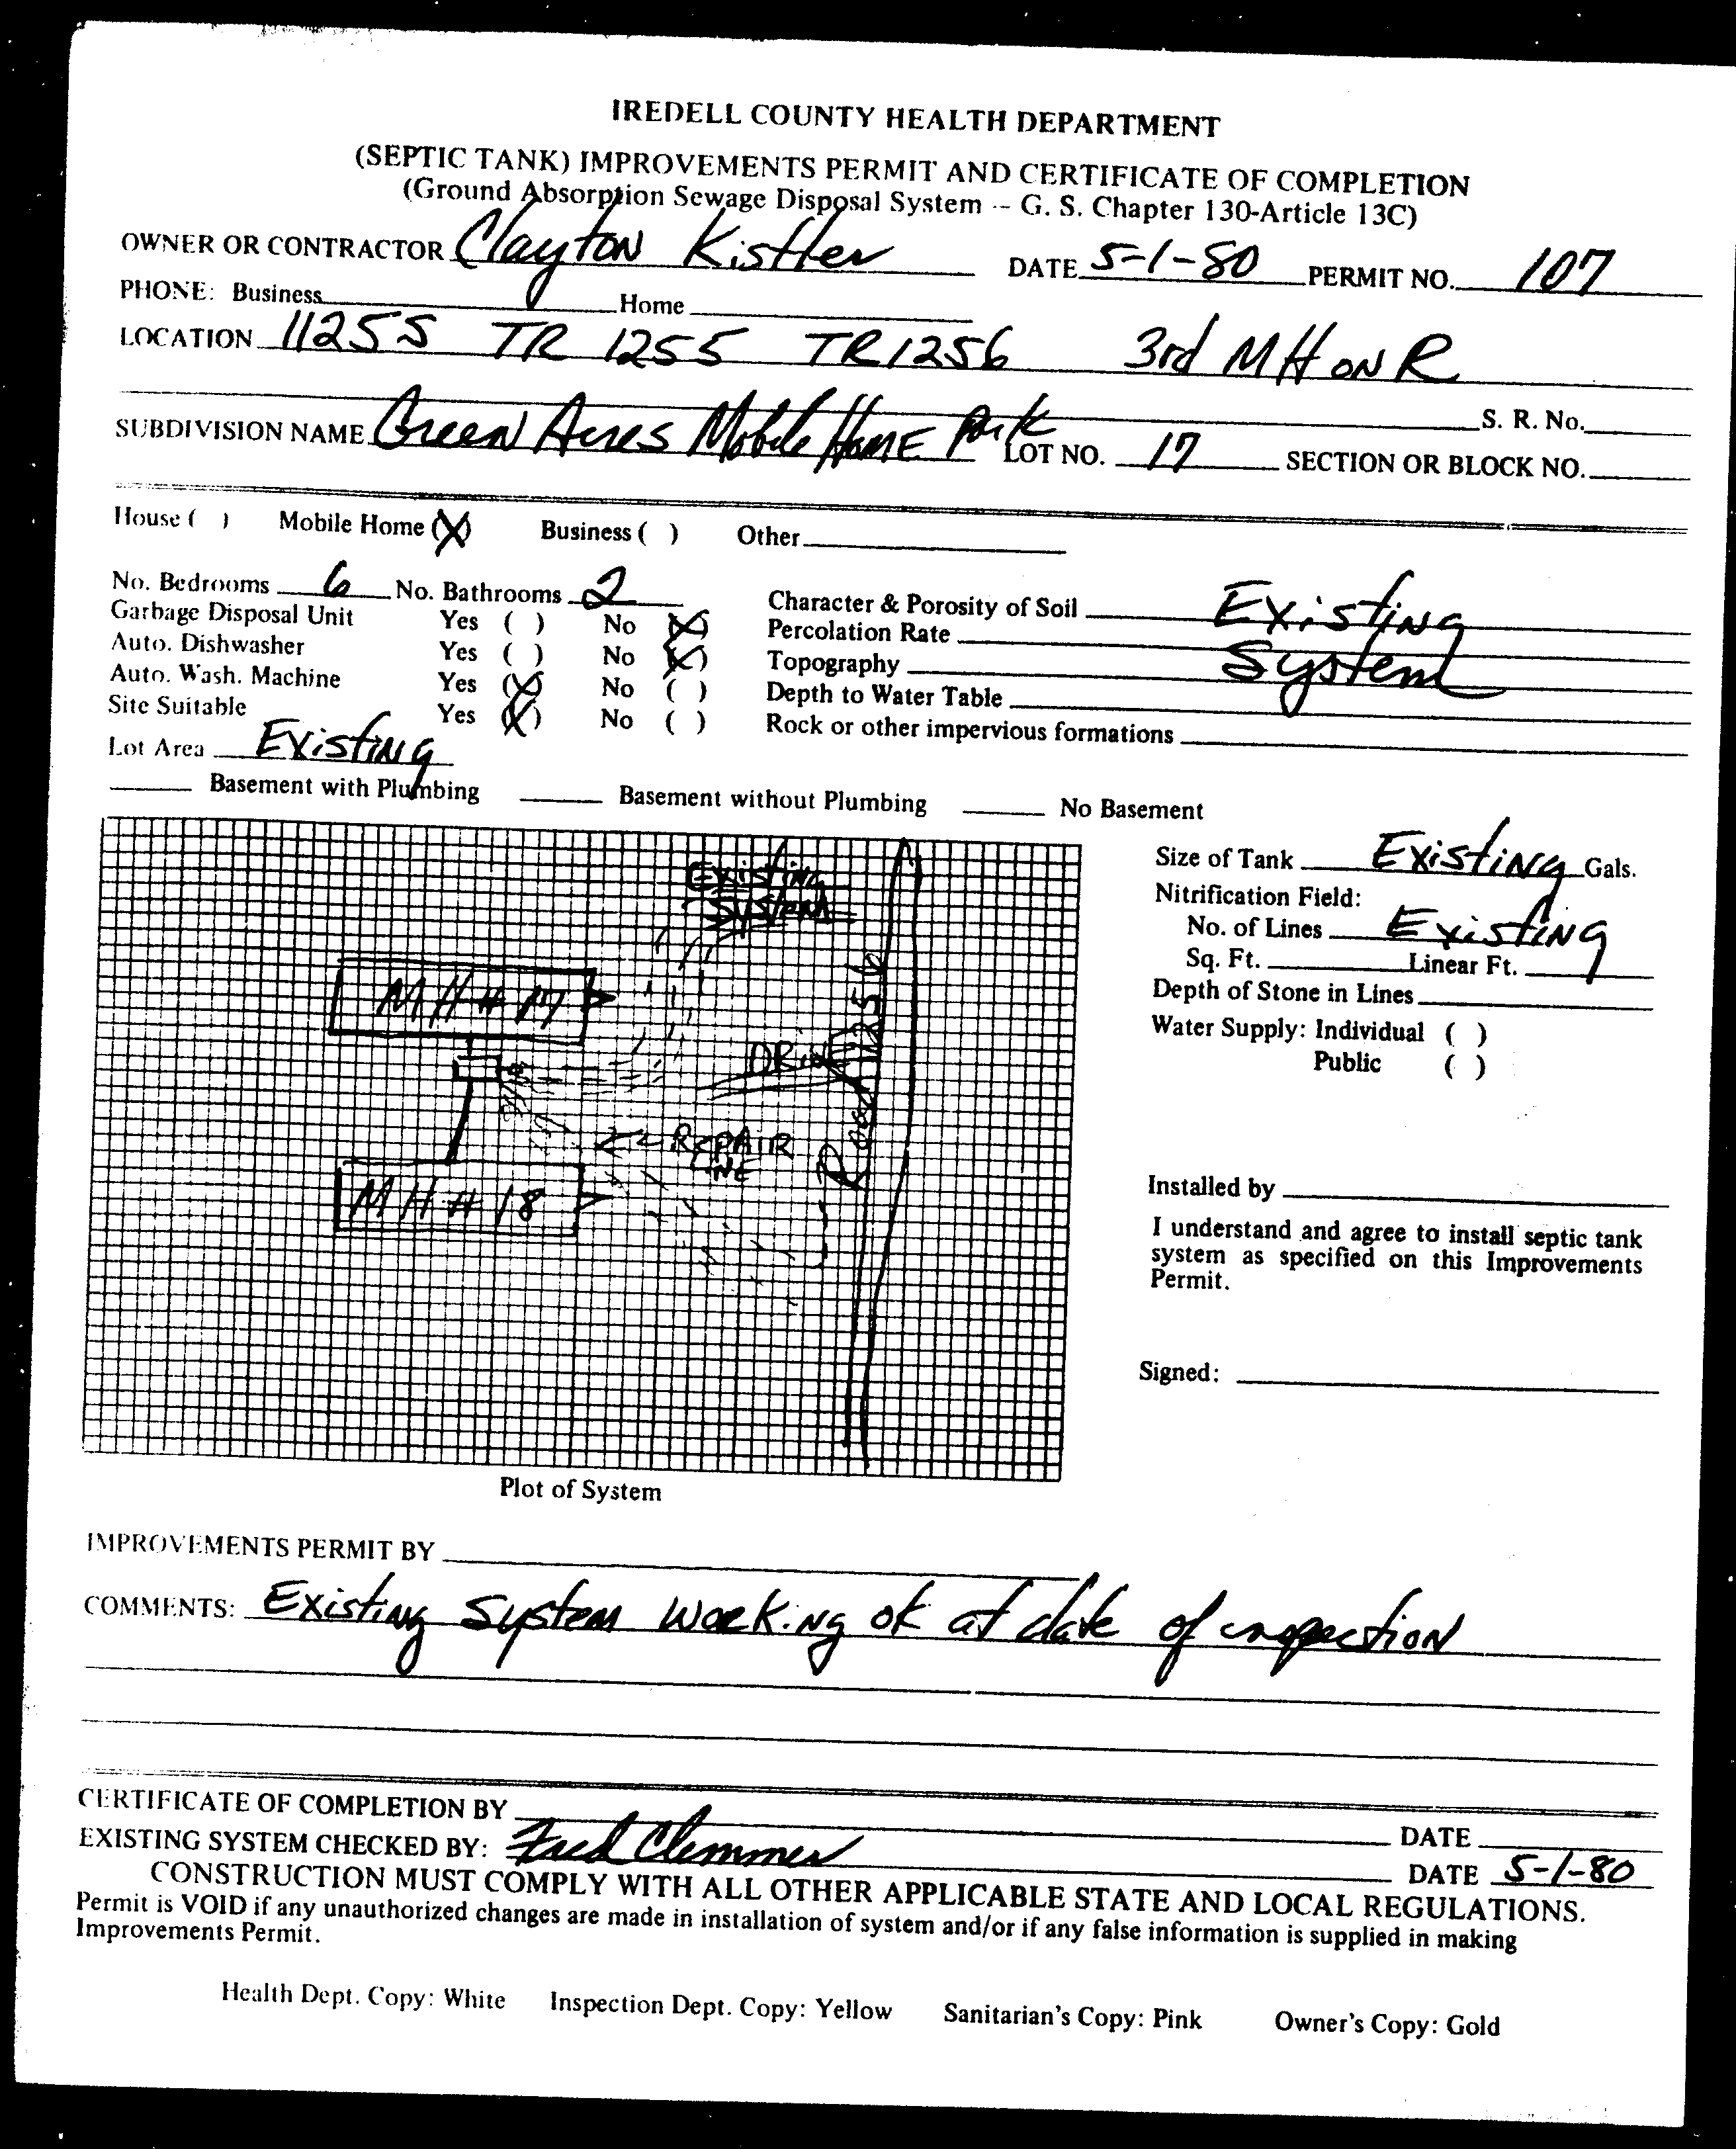 IREDELL COUNTY HEALTH DEPARTMENT
(SEPTIC TANK) IMPROVEMENTS PERMIT AND CERTIFICATE OF COMPLETION
(Ground Absorption Sewage Disposal System -- G. S. Chapter 130-Article 13C)
OWNER OR CONTRACTOR Clayton Kistler DATE 5-1-80 PERMIT NO. 107
PHONE: Business Home
LOCATION 1125S TR 1255 TR1256 3rd MH ON R
S. R. No.
SUBDIVISION NAME Green Acres Mobile Home Park LOT NO. 17 SECTION OR BLOCK NO.
House ( ) Mobile Home (X) Business ( ) Other
No. Bedrooms 6 No. Bathrooms 2
Garbage Disposal Unit Yes ( ) No (X)
Auto. Dishwasher Yes ( ) No (X)
Auto. Wash. Machine Yes (X) No ( )
Site Suitable Yes (X) No ( )
Lot Area Existing
Character & Porosity of Soil Existing
Percolation Rate
Topography System
Depth to Water Table
Rock or other impervious formations
Basement with Plumbing Basement without Plumbing No Basement
Existing
System
MH # 17
DRive
Road 1256
REPAIR
LINE
MH # 18
Plot of System
Size of Tank Existing Gals.
Nitrification Field:
No. of Lines Existing
Sq. Ft. Linear Ft.
Depth of Stone in Lines
Water Supply: Individual ( )
Public ( )
Installed by
I understand and agree to install septic tank
system as specified on this Improvements
Permit.
Signed:
IMPROVEMENTS PERMIT BY
COMMENTS: Existing System Working ok at date of inspection
CERTIFICATE OF COMPLETION BY DATE
EXISTING SYSTEM CHECKED BY: Fred Clemmer DATE 5-1-80
CONSTRUCTION MUST COMPLY WITH ALL OTHER APPLICABLE STATE AND LOCAL REGULATIONS.
Permit is VOID if any unauthorized changes are made in installation of system and/or if any false information is supplied in making
Improvements Permit.
Health Dept. Copy: White Inspection Dept. Copy: Yellow Sanitarian's Copy: Pink Owner's Copy: Gold